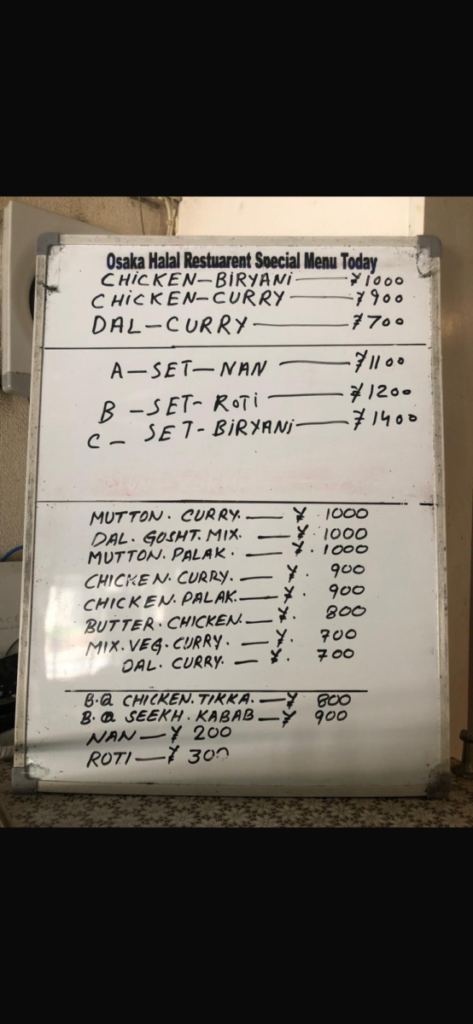 Osaka Halal Restuarent Special Menu Today
CHICKEN-BIRYANI — ¥1000
CHICKEN-CURRY — ¥900
DAL-CURRY — ¥700
A-SET-NAN — ¥1100
B-SET-ROTI — ¥1200
C-SET-BIRYANI — ¥1400
MUTTON. CURRY. — ¥ 1000
DAL. GOSHT. MIX. — ¥. 1000
MUTTON. PALAK. — ¥. 1000
CHICKEN. CURRY. — ¥. 900
CHICKEN. PALAK. — ¥. 900
BUTTER. CHICKEN — ¥. 800
MIX. VEG. CURRY. — ¥. 700
DAL. CURRY. — ¥. 700
B.Q CHICKEN. TIKKA. — ¥ 800
B.Q SEEKH. KABAB — ¥ 900
NAN — ¥ 200
ROTI — ¥ 300